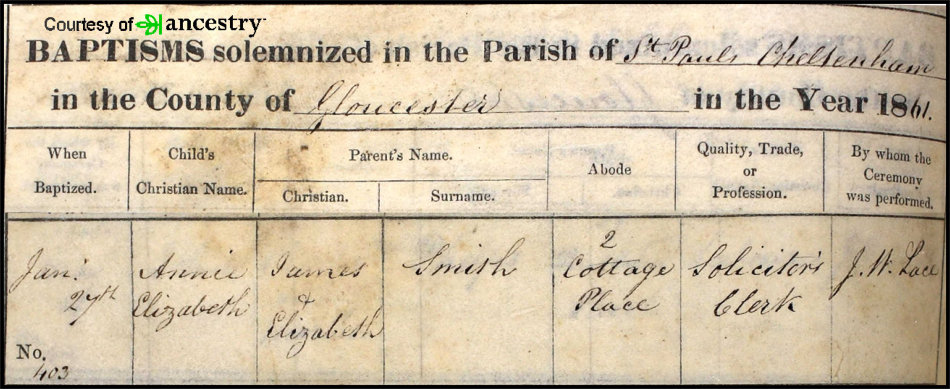 Courtesy of ancestry
BAPTISMS solemnized in the Parish of St. Pauls Cheltenham
in the County of Gloucester in the Year 1861.
When
Baptized.
Child's
Christian Name.
Parent's Name.
Christian.
Surname.
Abode
Quality, Trade,
or
Profession.
By whom the
Ceremony
was performed.
Jan:
27th
Annie
Elizabeth
James
&
Elizabeth
Smith
2
Cottage
Place
Solicitor's
Clerk
J. W. Lace
No.
403